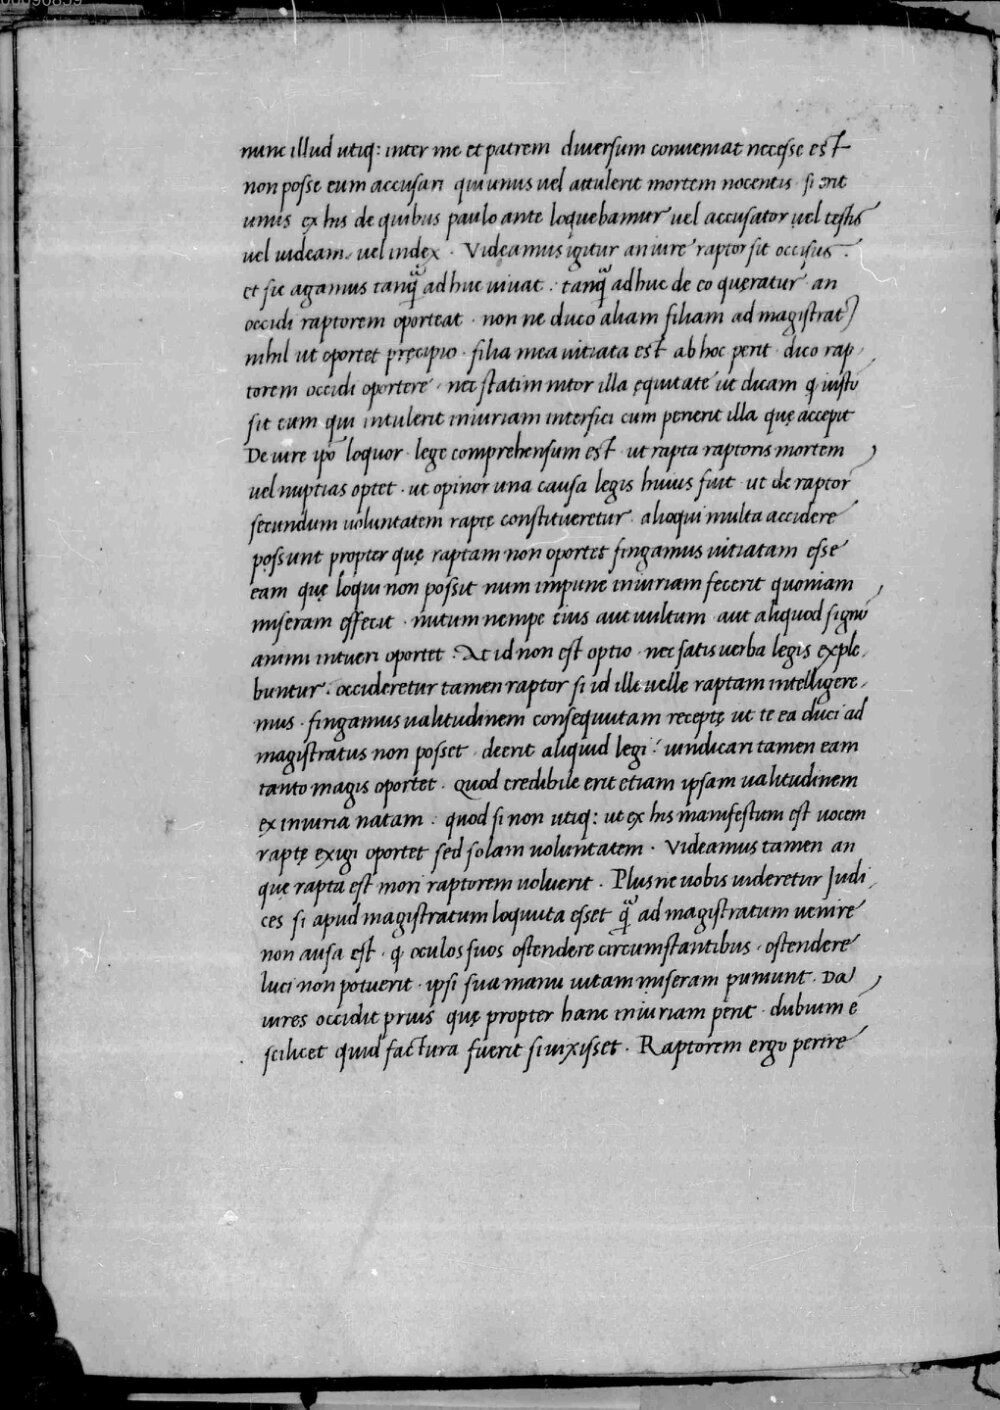 nunc illud utiq: inter me et patrem diversum conveniat necesse est
non posse eum accusari qui unus vel attulerit mortem nocentis · si erit
unus ex his de quibus paulo ante loquebamur vel accusator vel testis
vel videam. vel index · Videamus igitur an iure raptor sit occisus ·
et sic agamus tanq̃ adhuc vivat · tanq̃ adhuc de eo quęratur · an
occidi raptorem oporteat · non ne duco aliam filiam ad magistrat)
nihil ut oportet pręcipio · filia mea vitiata est ab hoc perit · dico rap,
torem occidi oportere · nec statim nitor illa ęquitate ut dicam q̃ iustū
sit eum qui intulerit iniuriam interfici cum perierit illa quę accepit
De iure ip̄o loquor · lege comprehensum est · ut rapta raptoris mortem
vel nuptias optet · ut opinor una causa legis huius fuit · ut de raptor
secundum voluntatem raptę constitueretur · alioqui multa accidere
possunt propter quę raptam non oportet fingamus vitiatam esse
eam quę loqui non possit num impune iniuriam fecerit quoniam
miseram effecit · nutum nempe eius aut vultum aut aliquod signū
animi intueri oportet : At id non est optio · nec satis verba legis exple,
buntur · occideretur tamen raptor si id illi velle raptam intelligere,
mus · fingamus valitudinem consequutam receptę ut te ea duci ad
magistratus non posset · deerit aliquid legi : vindicari tamen eam
tanto magis oportet · Quod credibile erit etiam ipsam valitudinem
ex iniuria natam : quod si non utiq: ut ex his manifestum est vocem
raptę exigi oportet sed solam voluntatem · Videamus tamen an
quę rapta est mori raptorem voluerit · Plusne vobis videretur Judi,
ces si apud magistratum loquuta esset q̃ ad magistratum venire
non ausa est · q̃ oculos suos ostendere circumstantibus · ostendere
luci non potuerit · ipsi sua manu vitam miseram puniunt · Da
vires occidit prius quę propter hanc iniuriam perit · dubium ē
scilicet quid factura fuerit si vixisset · Raptorem ergo perire